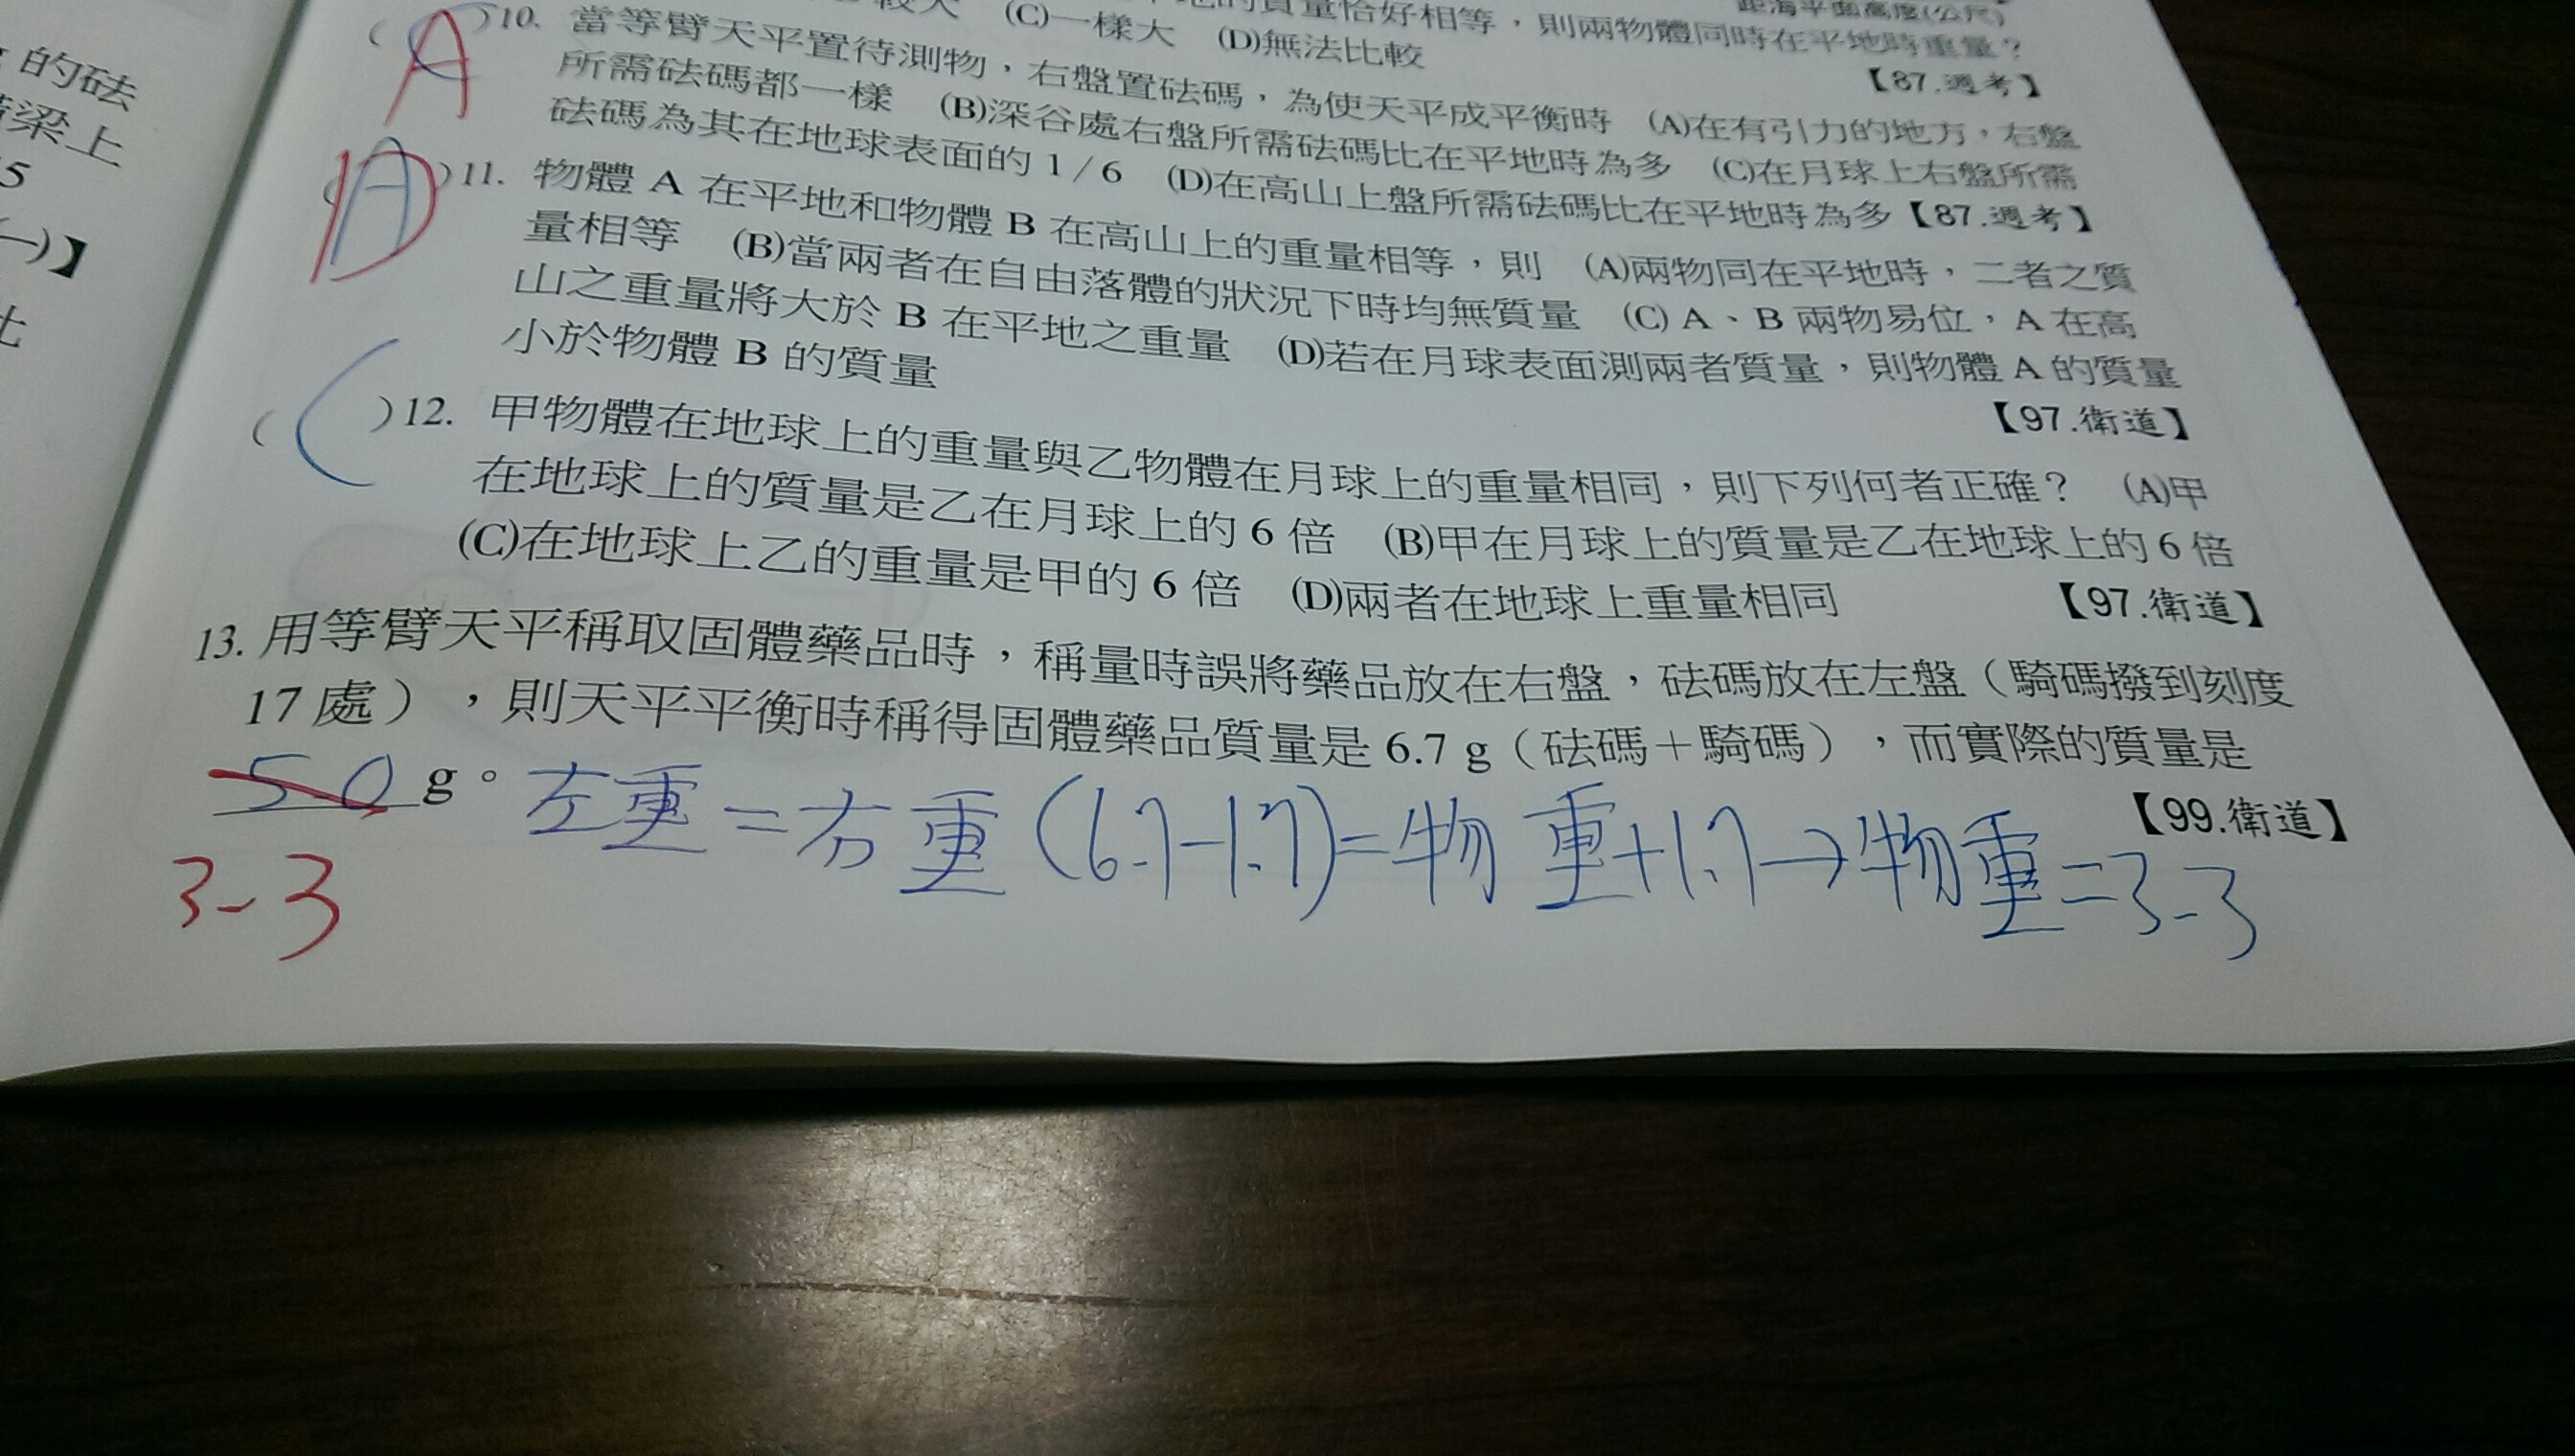 的砝
梁上
5
(一)】
比
較大　(C)一樣大　(D)無法比較
的質量恰好相等，則兩物體同時在平地時重量？
距海平面高度(公尺)
【87.週考】
(A)10. 當等臂天平置待測物，右盤置砝碼，為使天平成平衡時　(A)在有引力的地方，右盤
所需砝碼都一樣　(B)深谷處右盤所需砝碼比在平地時為多　(C)在月球上右盤所需
砝碼為其在地球表面的 1/6　(D)在高山上盤所需砝碼比在平地時為多【87.週考】
(D)11. 物體 A 在平地和物體 B 在高山上的重量相等，則　(A)兩物同在平地時，二者之質
量相等　(B)當兩者在自由落體的狀況下時均無質量　(C) A、B 兩物易位，A 在高
山之重量將大於 B 在平地之重量　(D)若在月球表面測兩者質量，則物體 A 的質量
小於物體 B 的質量　【97.衛道】
(C)12. 甲物體在地球上的重量與乙物體在月球上的重量相同，則下列何者正確？　(A)甲
在地球上的質量是乙在月球上的 6 倍　(B)甲在月球上的質量是乙在地球上的 6 倍
(C)在地球上乙的重量是甲的 6 倍　(D)兩者在地球上重量相同　【97.衛道】
13. 用等臂天平稱取固體藥品時，稱量時誤將藥品放在右盤，砝碼放在左盤（騎碼撥到刻度
17 處），則天平平衡時稱得固體藥品質量是 6.7 g（砝碼＋騎碼），而實際的質量是
5.0 g。　【99.衛道】
左重=右重(6.7-1.7)=物重+1.7→物重=3.3
3.3